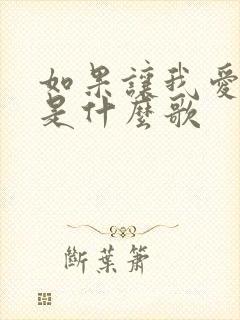 如果讓我愛
是什麼歌
斷葉簫